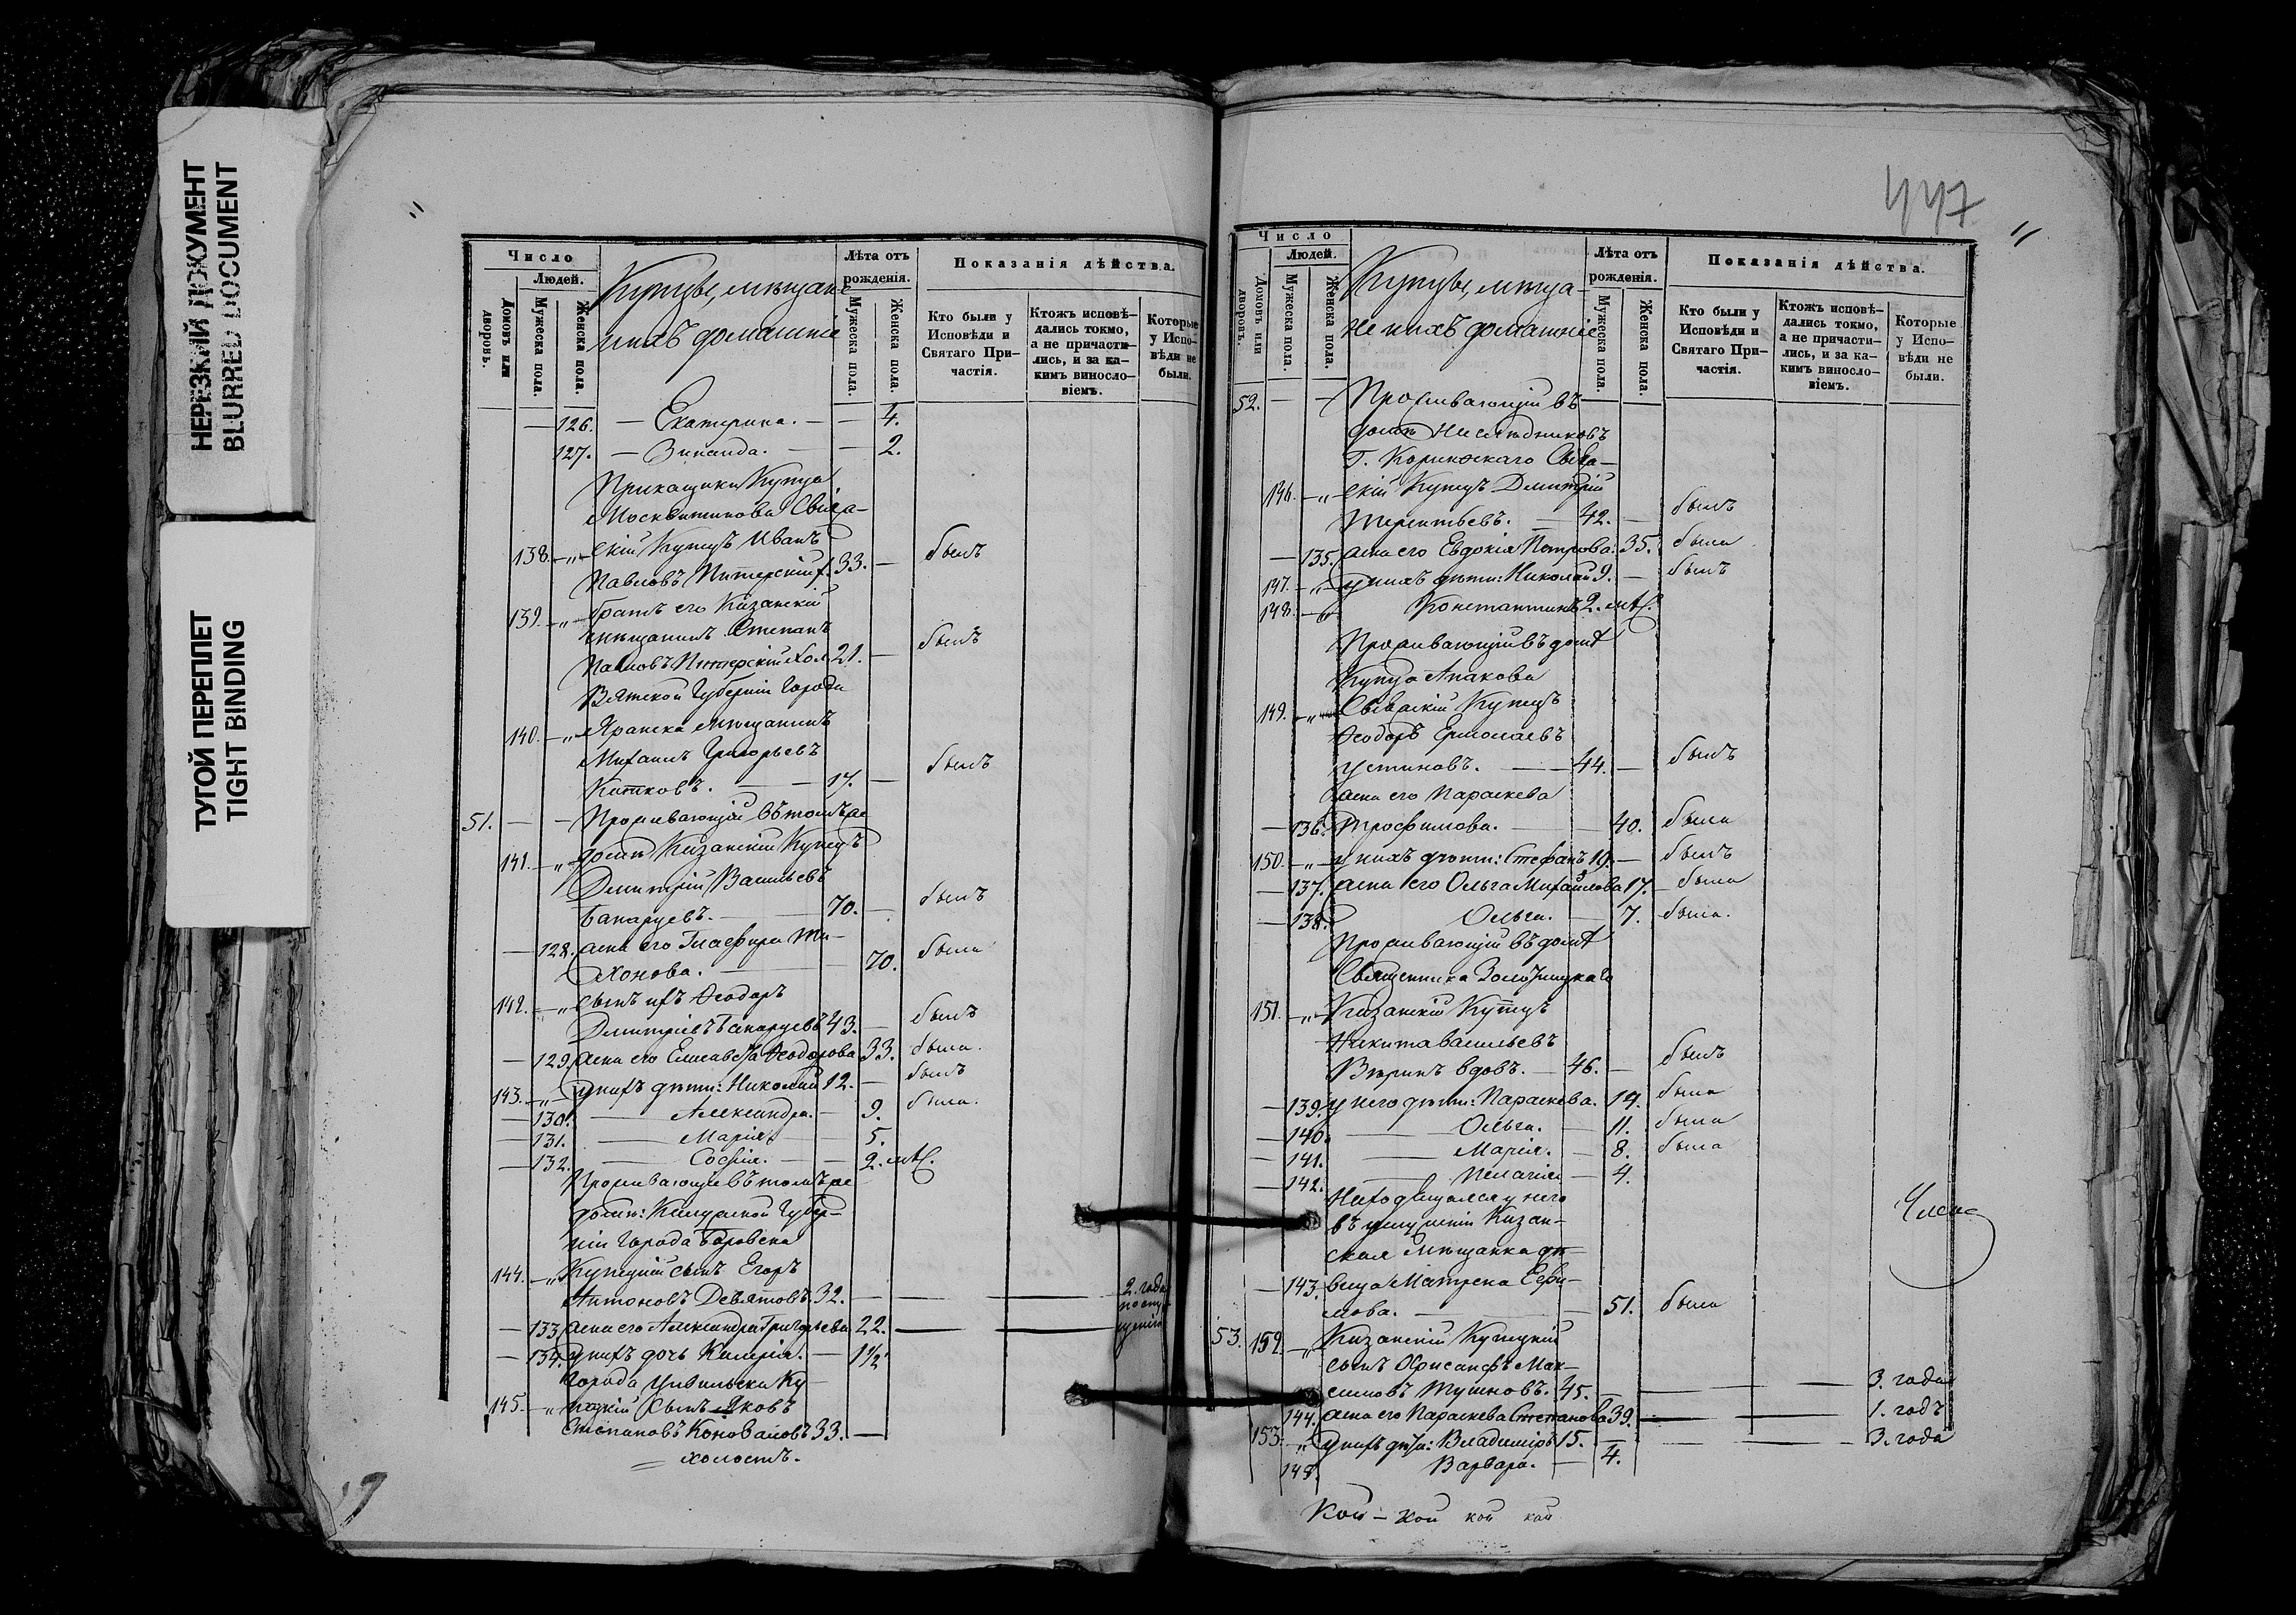 НЕРЕЗКИЙ ДОКУМЕНТ
BLURRED DOCUMENT
ТУГОЙ ПЕРЕПЛЕТ
TIGHT BINDING
Число
Людей.
Домовъ или дворовъ.
Мужеска пола.
Женска пола.
Купцы, мѣщане
и ихъ домашніе
Лѣта отъ рожденія.
Мужеска пола.
Женска пола.
Показанія дѣйства.
Кто были у Исповѣди и Святаго Причастія.
Ктожъ исповѣдались токмо, а не причастились, и за какимъ винословіемъ.
Которые у Исповѣди не были.
126. — Екатерина. — — 4.
127. — Зинаида. — — 2.
Прикащики Купца
Москвитинова Свіяж-
138. — „ — скій Купецъ Иванъ
Павловъ Питерскій 33. — былъ
139. — „ — братъ его Казанскій
мѣщанинъ Степанъ
Павловъ Питерскій хол. 21. — былъ
Вятской Губерніи Города
140. — „ — Яранска Мѣщанинъ
Михаилъ Григорьевъ
Китковъ. — — 17. — былъ
51. — — Проживающій въ томъ же
141. — „ — домѣ Казанскій Купецъ
Дмитрій Васильевъ
Банарцевъ. — 70. — былъ
— 128. жена его Глафира Ти-
хонова. — 70. была
142. — „ — сынъ ихъ Ѳеодоръ
Дмитріевъ Банарцевъ 43. — былъ
— 129. жена его Елисавета Ѳеодорова 33. была.
143. — „ — у нихъ дѣти: Николай 12. — былъ
— 130. — Александра. — 9. была.
— 131. — Марія. — 5.
— 132. — Софія. — — 2. мѣс.
Проживающіе въ томъ же
домѣ: Калужской Губер-
ніи Города Боровска
144. — „ Купецкій сынъ Егоръ
Антоновъ Девятовъ 32. — — — 2. года
— 133. жена его Александра Григорьева 22. — —
— 134. у нихъ дочь Калерія. — 1½
Города Цивильска Ку-
145. — „ пецкій сынъ Яковъ
Степановъ Коноваловъ 33. —
холостъ.
447
Число
Людей.
Домовъ или дворовъ.
Мужеска пола.
Женска пола.
Купцы, мѣща-
не и ихъ домашніе
Лѣта отъ рожденія.
Мужеска пола.
Женска пола.
Показанія дѣйства.
Кто были у Исповѣди и Святаго Причастія.
Ктожъ исповѣдались токмо, а не причастились, и за какимъ винословіемъ.
Которые у Исповѣди не были.
52. — — Проживающій въ
домѣ Наслѣдниковъ
Г. Коринѳскаго Свія-
146. — „ — скій Купецъ Дмитрій
Терентьевъ. — 42. — былъ
— 135. жена его Евдокія Петрова. 35. была
147. — „ — у нихъ дѣти: Николай 9. — былъ
148. — „ Константинъ 2. мѣс.
Проживающій въ домѣ
Купца Апакова
149. — „ — Свіяжскій Купецъ
Ѳеодоръ Ермолаевъ
Устиновъ. — 44. — былъ
жена его Параскева
— 136. Трофимова. — — 40. была
150. — „ — у нихъ дѣти: Стефанъ 19. — былъ
— 137. жена его Ольга Михайлова 17. — была
— 138. Ольга. — 7. была.
Проживающій въ домѣ
Священника Золотницкаго
151. — „ — Казанскій Купецъ
Никита Васильевъ
Вторинъ вдовъ. — 46. — былъ
— 139. у него дѣти: Параскева. 19. была
— 140. — Ольга. — 11. была
— 141. — Марія. — 8. была
— 142. — Пелагія — 4.
Находящаяся у него
въ услуженіи Казан-
ская Мѣщанка дѣ-
— 143. вица Матрена Ефи-
мова. — — 51. была
53. 152. — „ Казанскій Купецкій
сынъ Хрисанфъ Мак-
симовъ Тушновъ. 45. — — — 3. года
144. жена его Параскева Степанова 39. — — 1. годъ
153. — „ у нихъ дѣти: Владиміръ 15. — — — 3. года
145. Варвара. — 4.
Кой — кой кой кой